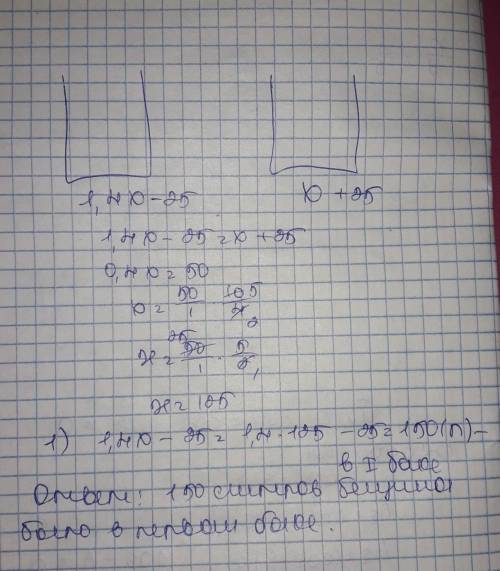 1,4х-25 х+25
1,4х-25=х+25
0,4х=50
х=50/1 · 105/42
х=50/1 · 5/2 25 1
х=125
1) 1,4х-25=1,4·125-25=150(л)-
в I баке
Ответ: 150 литров бензина
было в первом баке.